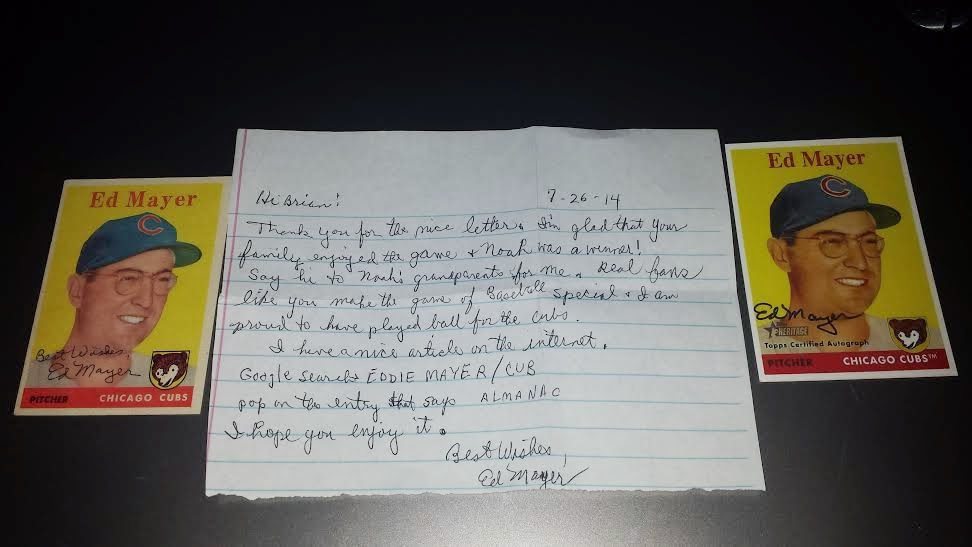 Ed Mayer
Best Wishes,
Ed Mayer
PITCHER CHICAGO CUBS
Hi Brian!
7-26-14
Thank you for the nice letter. I'm glad that your
family enjoyed the game & Noah was a winner!
Say hi to Noah's grandparents for me. Real fans
like you make the game of Baseball special & I am
proud to have played ball for the cubs.
I have a nice article on the internet.
Google search EDDIE MAYER/CUB
pop on the entry that says ALMANAC
I hope you enjoy it.
Best Wishes,
Ed Mayer
Ed Mayer
C
Ed Mayer
HERITAGE
Topps Certified Autograph
PITCHER CHICAGO CUBS™